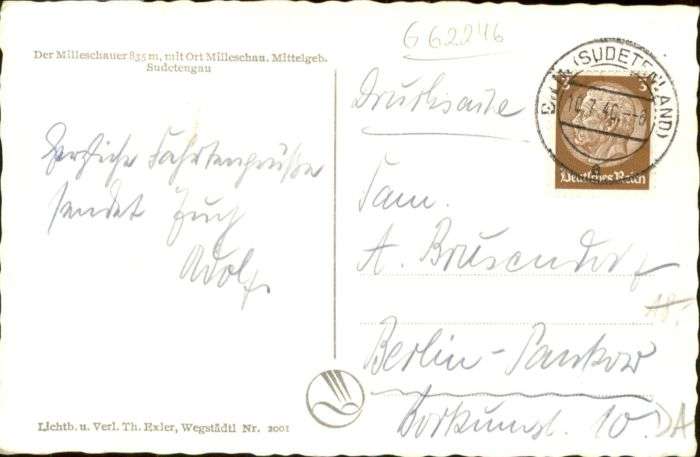 G62246
Der Milleschauer 835 m, mit Ort Milleschau. Mittelgeb.
Sudetengau
(SUDETENLAND)
10.7.40
Deutsches Reich
Drucksache
Herzliche Fahrtengrüße
sendet Euch
Adolf.
Fam.
A. Brusendorf
Berlin-Pankow
Borkumst. 10.
Lichtb. u. Verl. Th. Exler, Wegstädtl Nr. 2001